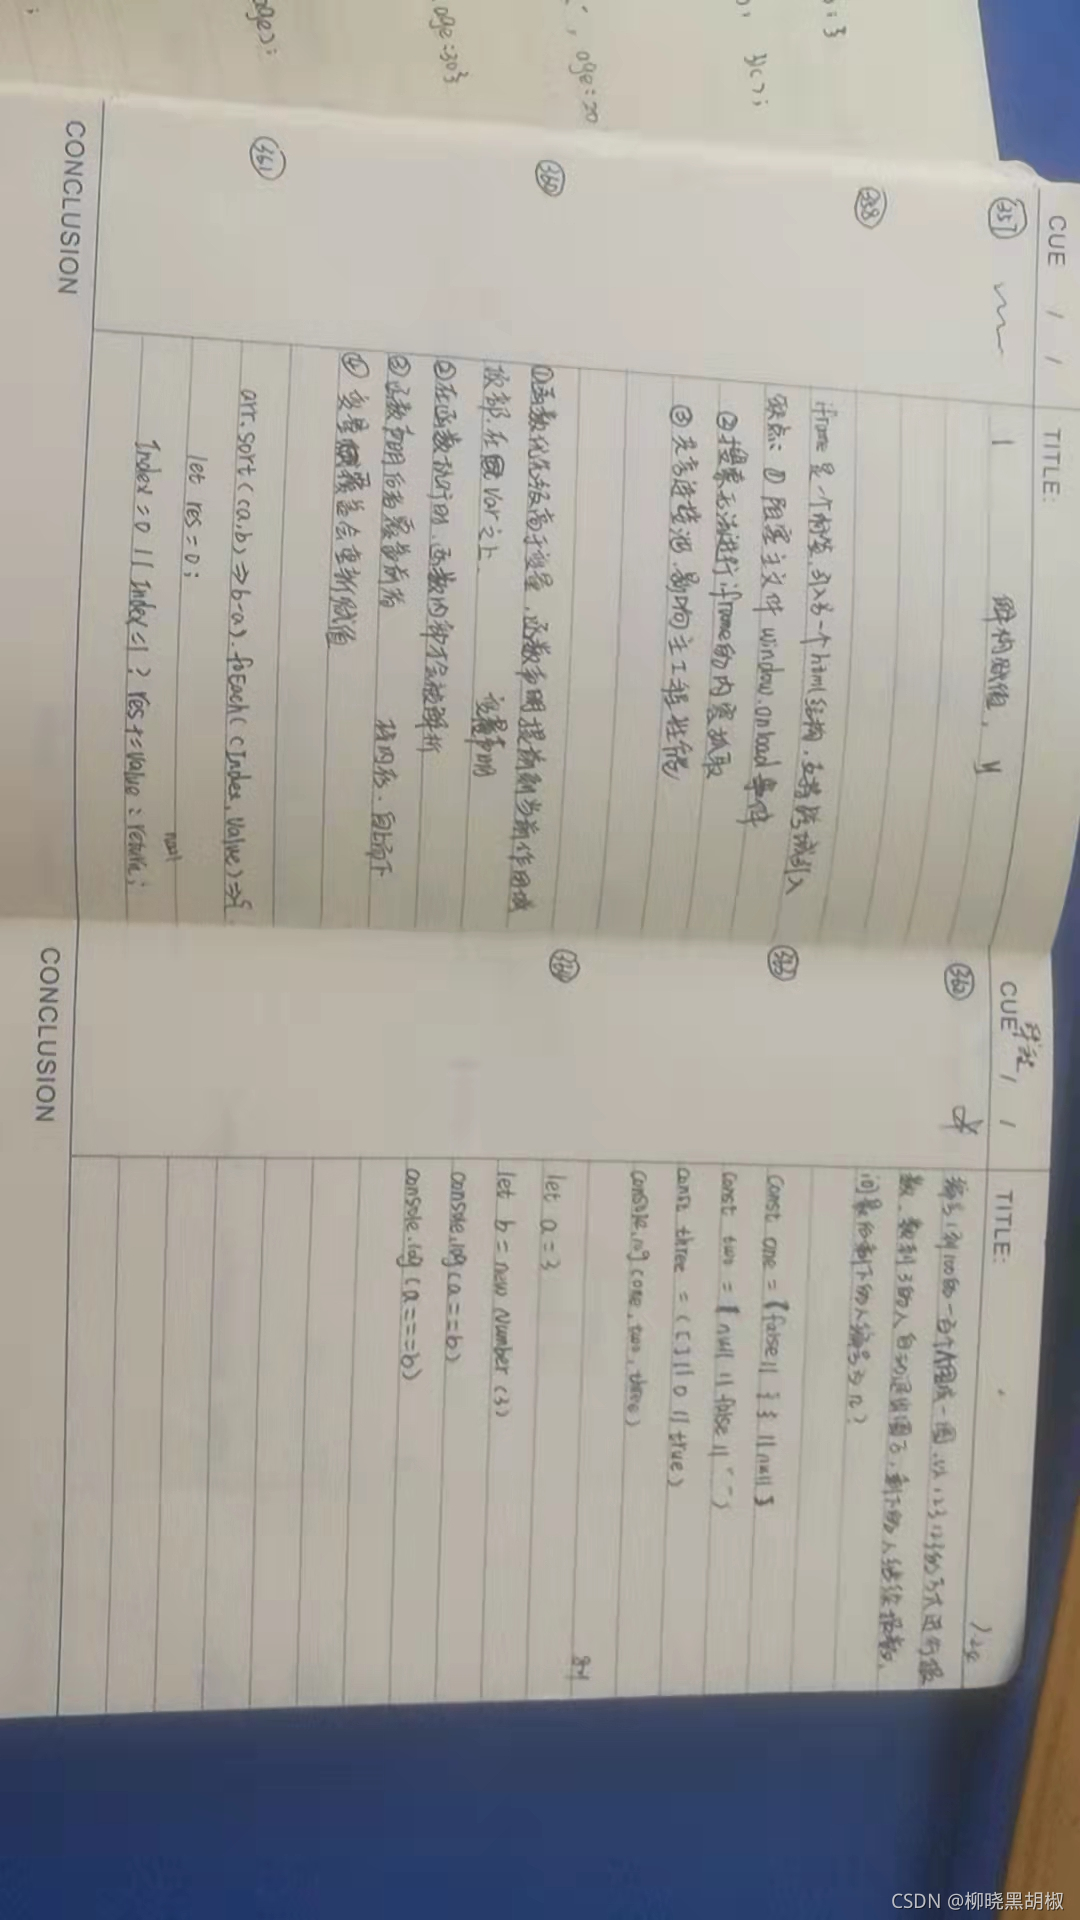 : 3
3();
age:20
age:30}
age);
CUE / /
TITLE:
357
1 解构赋值,
358
iframe是一个标签,引入另一个html结构,支持跨域引入
缺点: ① 阻塞主文件window.onload事件
② 搜索无法进行iframe的内容抓取
③ 共享连接池,影响主工程性能
360
①函数优先级高于变量,函数声明提前到当前作用域
顶部.在var之上. 变量声明
②在函数执行时,函数内部才会被解析
③函数声明后者覆盖前者 栈内存.自上而下
④ 变量覆盖会重新赋值
361
arr.sort((a,b)=>b-a).foEach((Index,Value)=>{
let res=0;
Index=0 || Index=1 ? res+=value : return;
null
CONCLUSION
CUE / /
TITLE:
362
编号1到100的一百个人围成一圈,以123123的方式进行报
数,数到3的人自动退出圈子,剩下的人继续报数,
问最后剩下的人编号为n?
363
const one = (false || {} || null)
const two = (null || false || "")
const three = ([] || 0 || true)
console.log(one, two, three)
364
let a=3
let b=new Number(3)
console.log(a==b)
console.log(a===b)
CONCLUSION
CSDN @柳晓黑胡椒